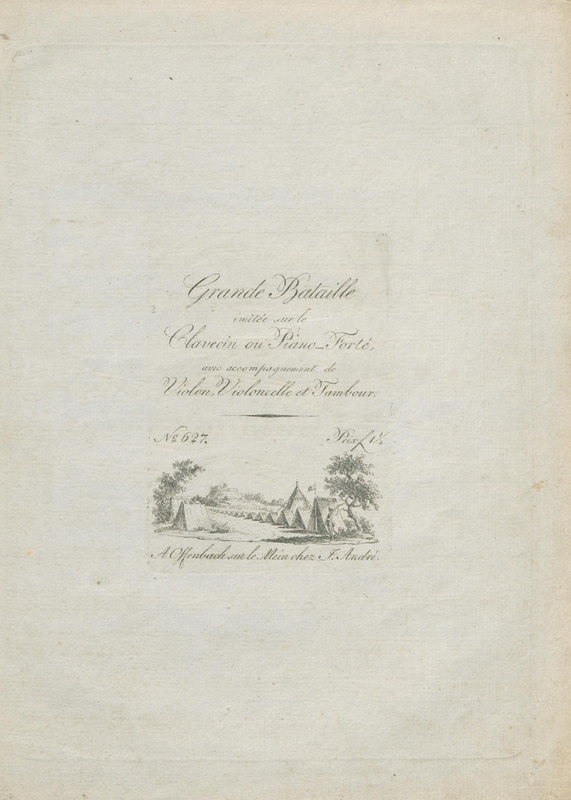 Grande Bataille
imitée sur le
Clavecin ou Piano-Forté,
avec accompagnement de
Violon, Violoncelle et Tambour.
No. 627. Prix f 1¼
A Offenbach sur le Mein chez J. André.